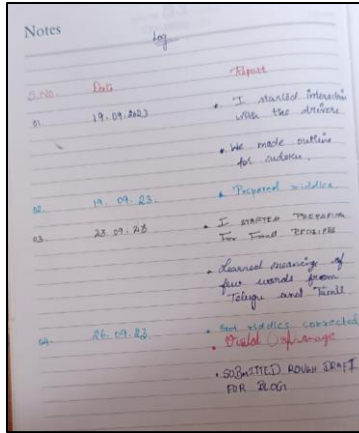 Notes
Log
S.No. Date Report
01 19.09.2023 • I started interaction
with the drivers
• We made outline
for sudoku.
02. 19.09.23. • Prepared riddles.
03. 23.09.23 • I STARTED PREPARING
For Food RECIPIES
• Learned meanings of
few words from
Telegu and Tamil.
04. 26.09.23 • riddles corrected
• Orphanage
• SUBMITTED ROUGH DRAFT
FOR BLOG